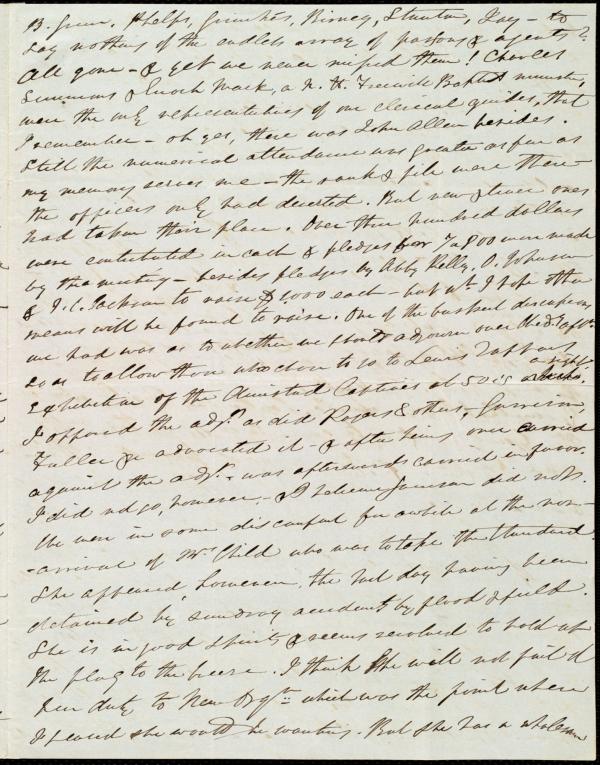 B. Green, Phelps, Grimkés, Birney, Stanton, Jay - to
say nothing of the endless array of parsons & agents?
All gone - & yet we never missed them! Charles
Simmons & Enoch Mack, a N. H. Freewill Baptist minister,
were the only representatives of our clerical guides, that
I remember - oh yes, there was John Allen besides.
Still the numerical attendance was greater as far as
my memory serves me - the rank & file were there -
the officers only had deserted. But new & truer ones
had taken their place. Over three hundred dollars
were contributed in cash & pledges for 7 or 800 were made
by the meeting - besides pledges by Abby Kelly, O. Johnson
& J. C. Jackson to raise $1000 each - but wh. I hope other
means will be found to raise. One of the warmest discussions
we had was as to whether we should adjourn over Wed. aftn.
so as to allow those who chose to go to Lewis Tappan's
exhibition of the Amistad Captives at 50 cts a sight.
I opposed the adjt. as did Rogers & others, Garrison,
Fuller &c advocated it - & after being once carried
against the adjt. was afterwards carried in favor.
I did not go, however, & I believe Garrison did not.
We were in some discomfort for awhile at the non-
-arrival of Mrs. Child who was to take the Standard.
She appeared, however, the last day having been
detained by sundry accidents by flood & field.
She is in good spirits & seems resolved to hold up
the flag to the breeze. I think she will not fail of
her duty to New Orgn. which was the point where
I feared she would be wanting. But she has a wholesome